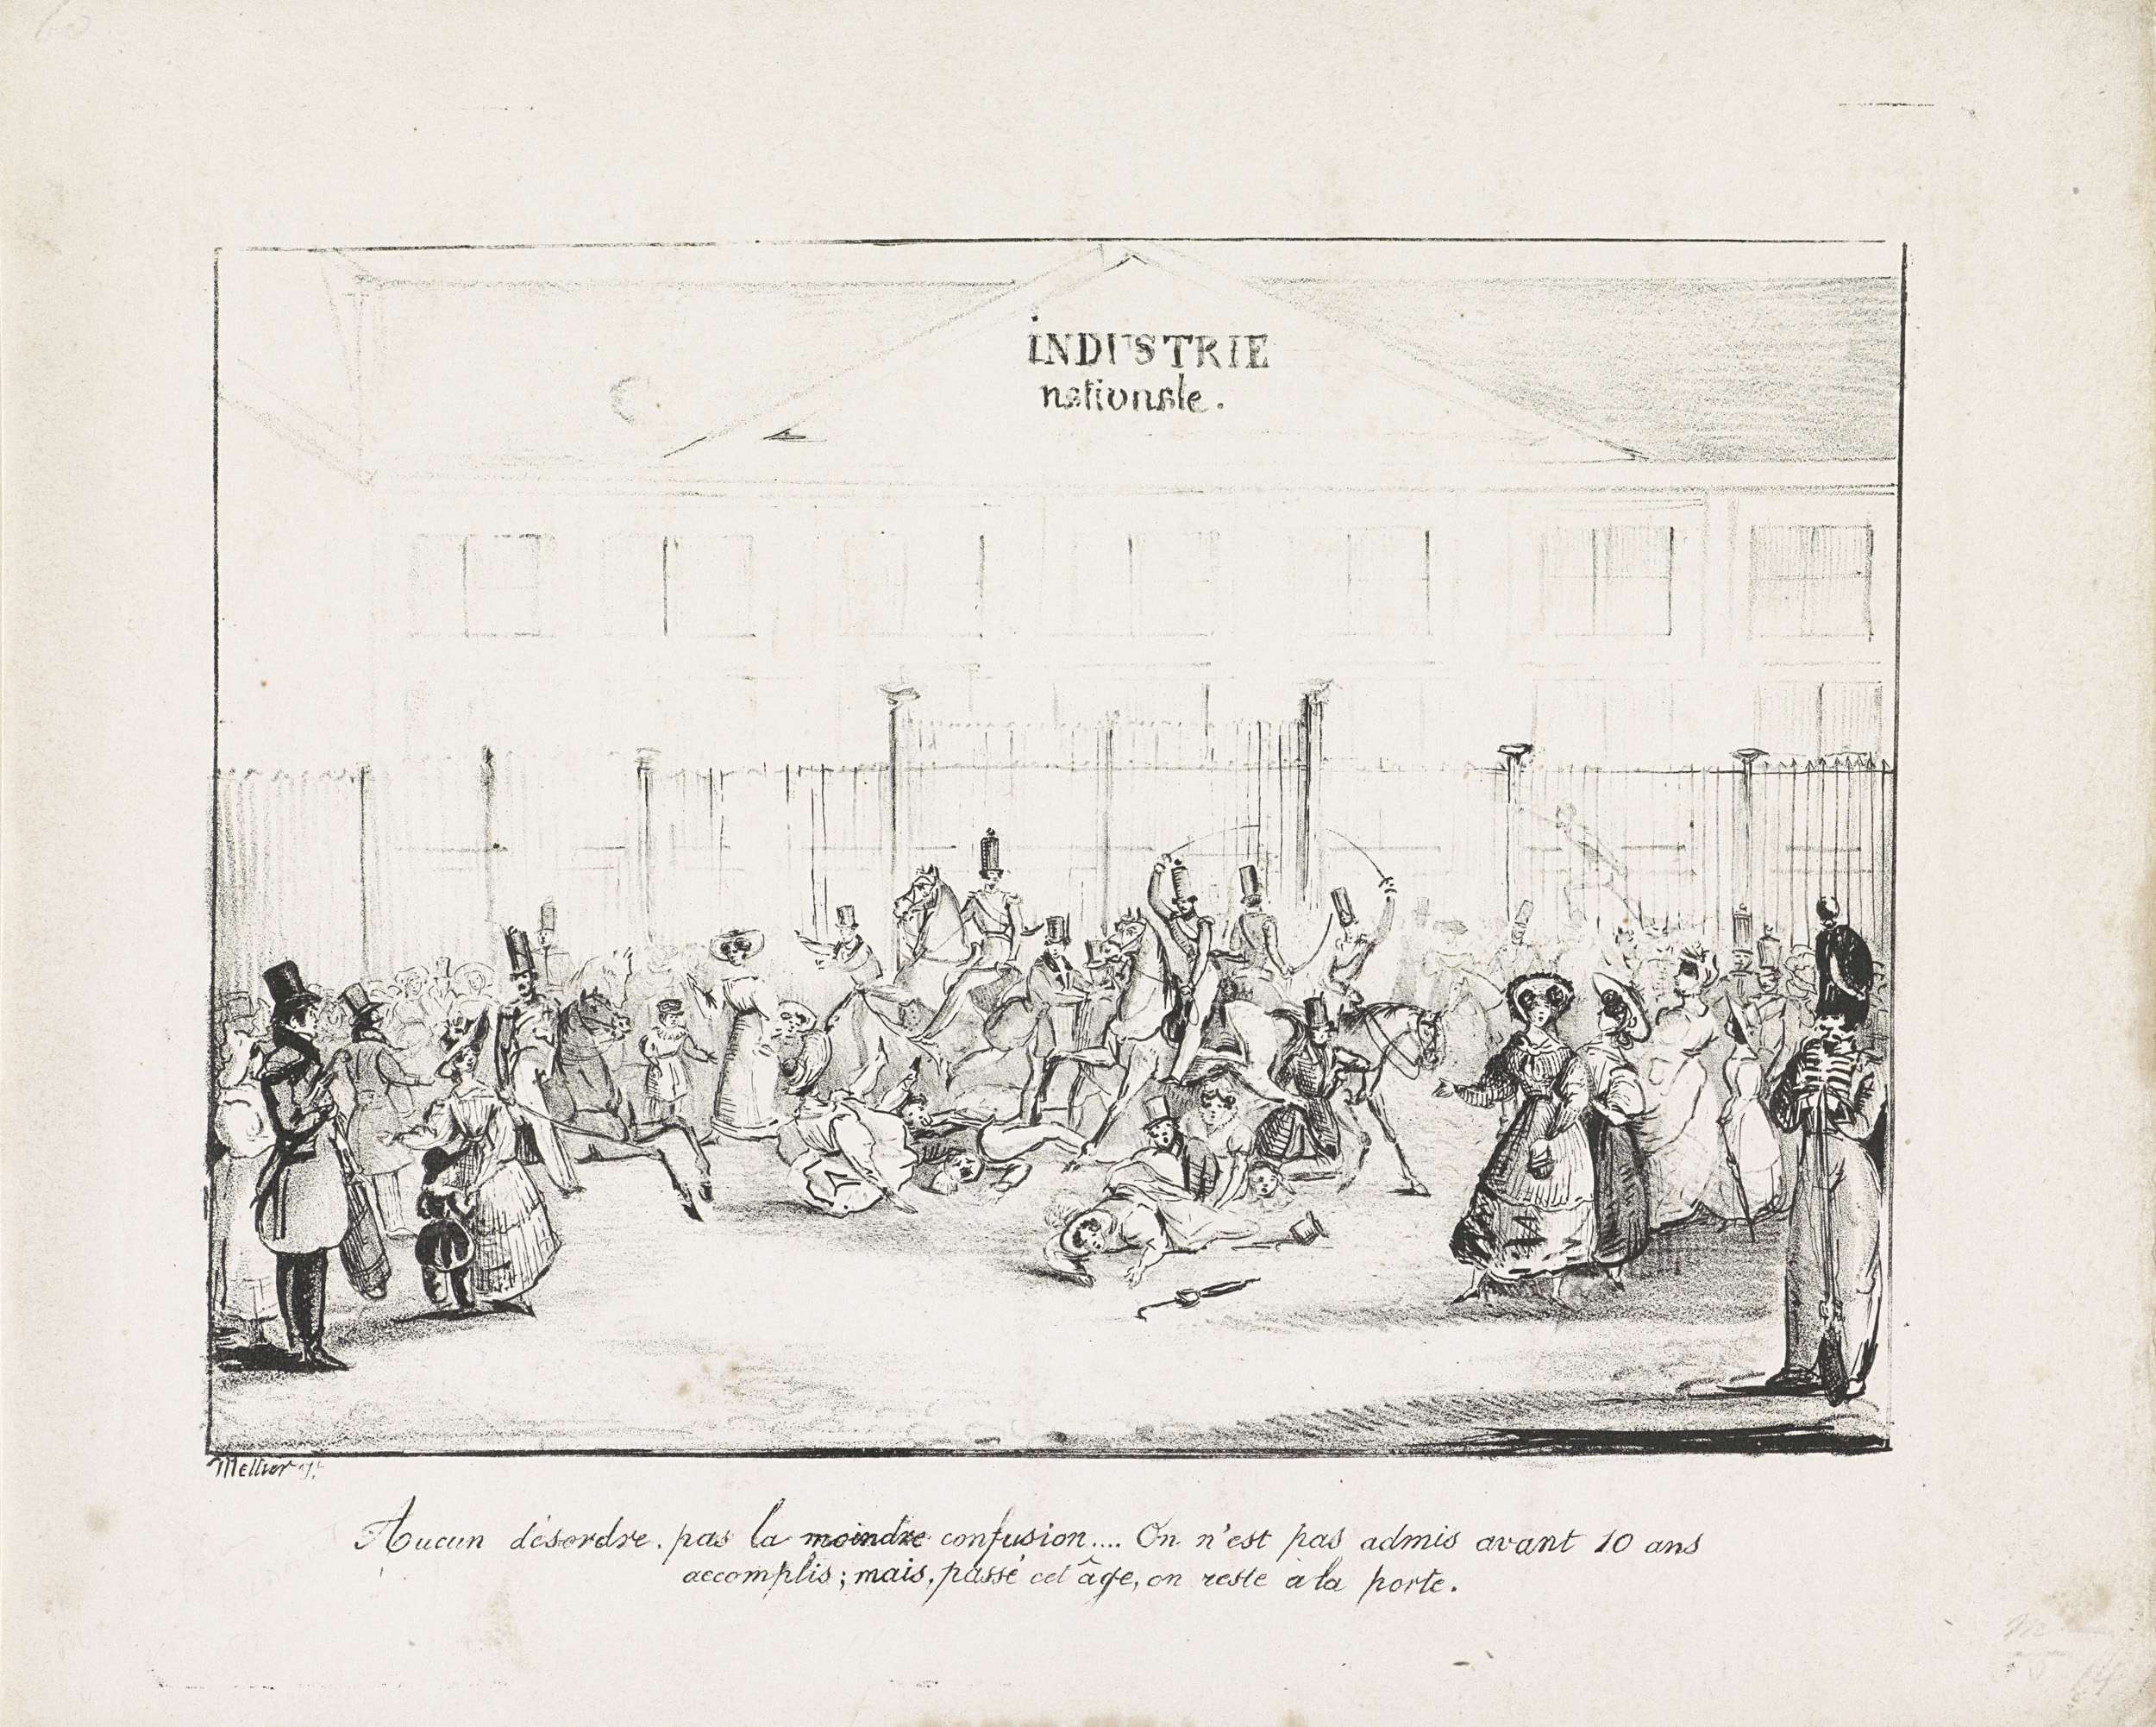 INDUSTRIE
nationale.
Mellier
Aucun désordre, pas la moindre confusion.... On n'est pas admis avant 10 ans
accomplis; mais, passé cet âge, on reste à la porte.